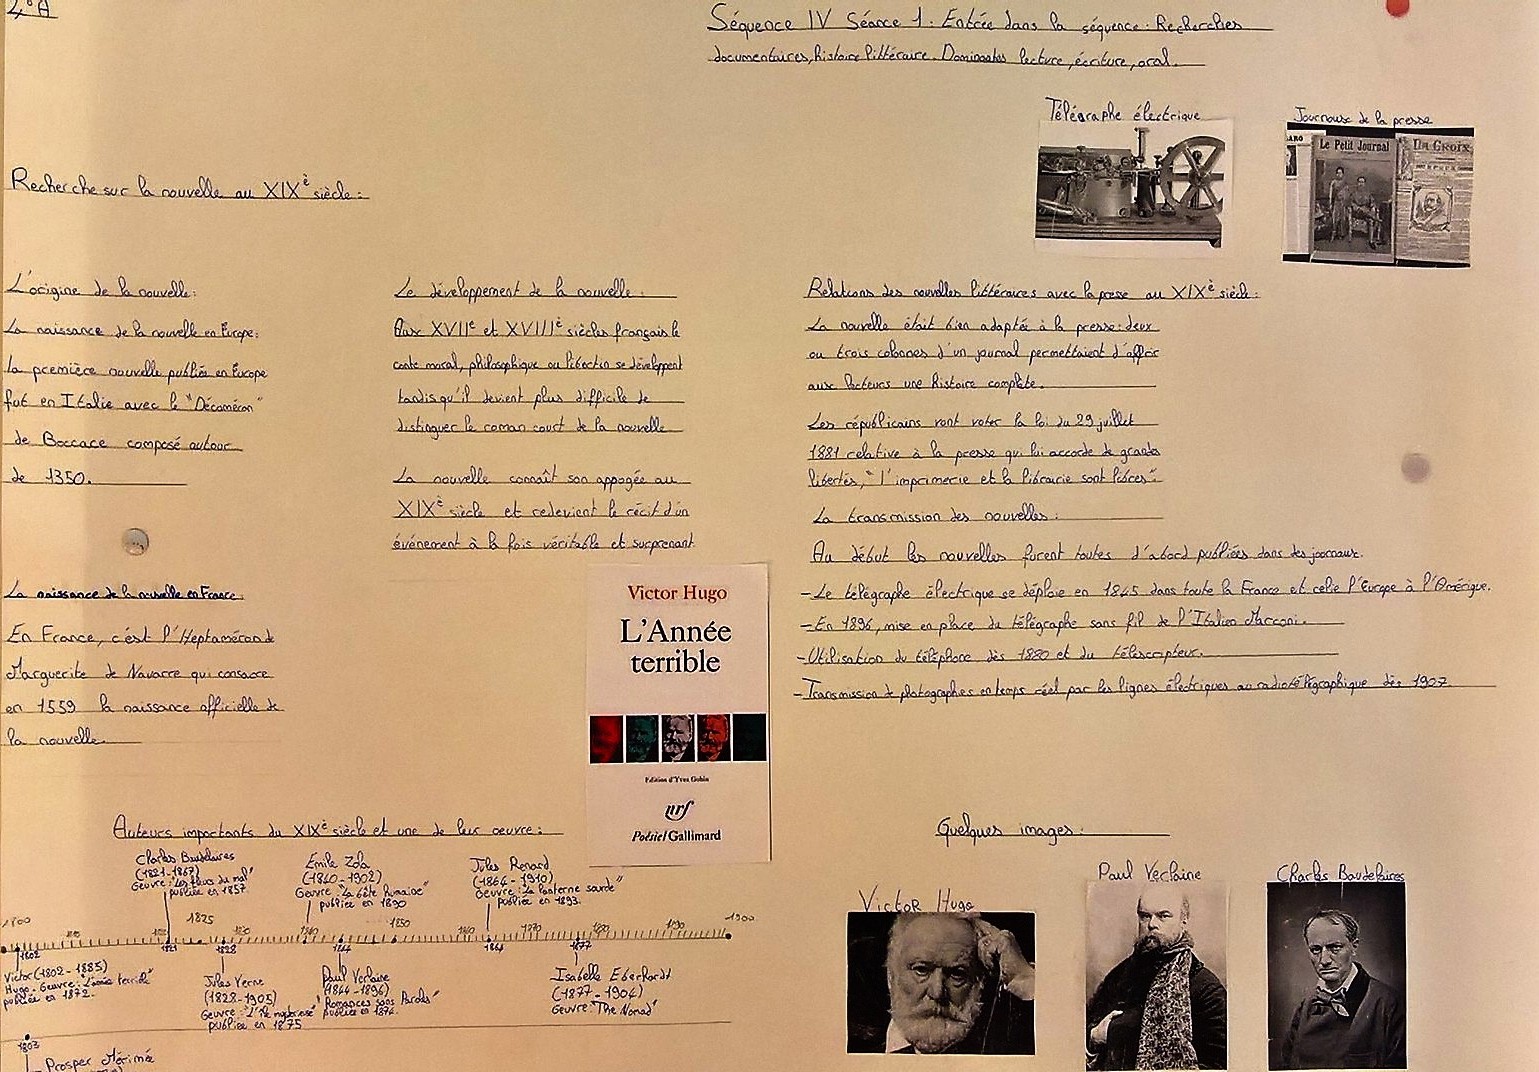 4°A
Séquence IV Séance 1: Entrée dans la séquence: Recherches
documentaires, histoire littéraire. Dominantes lecture, écriture, oral.
Télégraphe électrique
Journaux de la presse
Le Petit Journal
LA CROIX
Recherche sur la nouvelle au XIXè siècle:
L'origine de la nouvelle:
La naissance de la nouvelle en Europe:
La première nouvelle publiée en Europe
fut en Italie avec le "Décaméron"
de Boccace composé autour
de 1350.
La naissance de la nouvelle en France:
En France, c'est l'Heptaméron de
Marguerite de Navarre qui consacre
en 1559 la naissance officielle de
la nouvelle.
Le développement de la nouvelle:
Aux XVIIe et XVIIIè siècles français le
conte moral, philosophique ou libertin se développent
tandis qu'il devient plus difficile de
distinguer le roman court de la nouvelle
La nouvelle connaît son appogée au
XIXè siècle et redevient le récit d'un
événement à la fois véritable et surprenant
Victor Hugo
L'Année
terrible
Edition d'Yves Gohin
nrf
Poésie/Gallimard
Relations des nouvelles littéraires avec la presse au XIXè siècle:
La nouvelle était bien adaptée à la presse: deux
ou trois colonnes d'un journal permettaient d'offrir
aux lecteurs une histoire complète.
Les républicains vont voter la loi du 29 juillet
1881 relative à la presse qui lui accorde de grandes
libertés, "l'imprimerie et la librairie sont libres".
La transmission des nouvelles:
Au début les nouvelles furent toutes d'abord publiées dans des journaux.
- Le télégraphe électrique se déploie en 1845 dans toute la France et relie l'Europe à l'Amérique.
- En 1896, mise en place du télégraphe sans fil de l'Italien Marconi.
- Utilisation du téléphone dès 1880 et du télescripteur.
- Transmission de photographes en temps réel par les lignes électriques ou radiotélégraphique dès 1907.
Auteurs importants du XIXè siècle et une de leur oeuvre:
Charles Baudelaires
(1821-1867)
Oeuvre: "Les fleurs du mal"
publiée en 1857
Emile Zola
(1840-1902)
Oeuvre: "La bête humaine"
publiée en 1890
Jules Renard
(1864-1910)
Oeuvre: "La lanterne sourde"
publiée en 1893.
1800
1825
1830
1840
1850
1860
1870
1880
1890
1900
1802
1821
1828
1844
1864
1877
Victor (1802-1885)
Hugo. Oeuvre: "L'année terrible"
publiée en 1872.
Jules Verne
(1828-1905)
Oeuvre: "L'île mystérieuse"
publiée en 1875
Paul Verlaine
(1844-1896)
"Romances sans Paroles"
publiée en 1874.
Isabelle Eberhardt
(1877-1904)
Oeuvre: "The Nomad"
1803
Prosper Mérimée
Quelques images:
Victor Hugo
Paul Verlaine
Charles Baudelaires